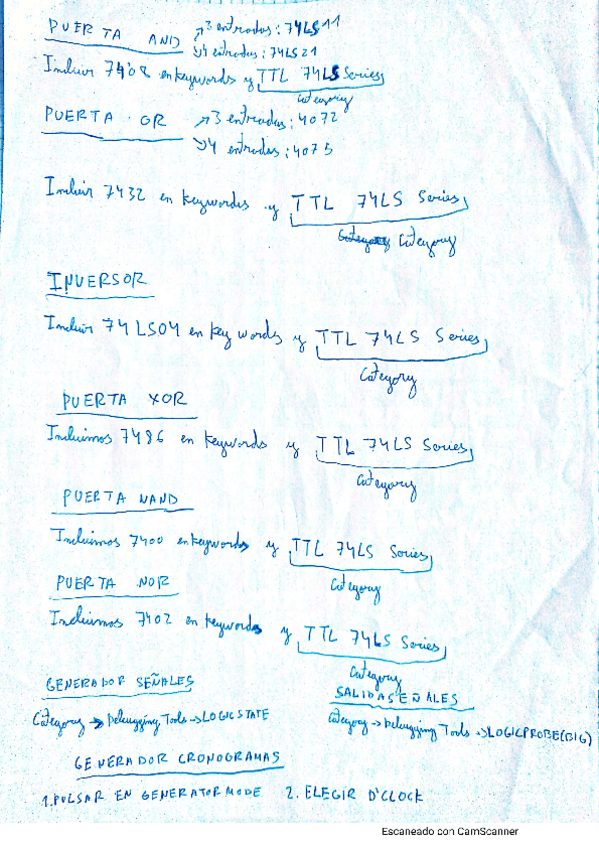 PUERTA AND ↗3 entradas: 74LS11
↘4 entradas: 74LS21
Incluir 7408 en keywords y TTL 74LS Series
Category
PUERTA OR ↗3 entradas: 4072
↘4 entradas: 4075
Incluir 7432 en keywords y TTL 74LS Series
Category Category
INVERSOR
Incluir 74LS04 en key words y TTL 74LS Series
Category
PUERTA XOR
Incluimos 7486 en keywords y TTL 74LS Series
Category
PUERTA NAND
Incluimos 7400 en keywords y TTL 74LS Series
Category
PUERTA NOR
Incluimos 7402 en keywords y TTL 74LS Series
Category
GENERADOR SEÑALES
Category → Debugging Tools → LOGICSTATE
SALIDA SEÑALES
Category → Debugging Tools → LOGICPROBE(BIG)
GENERADOR CRONOGRAMAS
1. PULSAR EN GENERATOR MODE 2. ELEGIR D'CLOCK
Escaneado con CamScanner